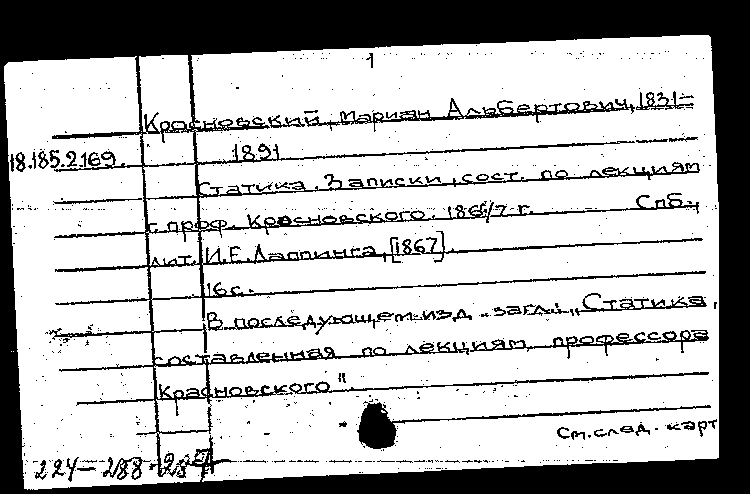 1
Красновский, Мариан Альбертович, 1831-
18.185.2.169. 1891
Статика. Записки, сост. по лекциям
г. проф. Красновского. 1866/7 г. Спб.,
лит. И.Е.Лаппинга, [1867].
16 с.
В последующем изд. загл.: "Статика,
составленная по лекциям профессора
Красновского".
См. след. карт
224-288